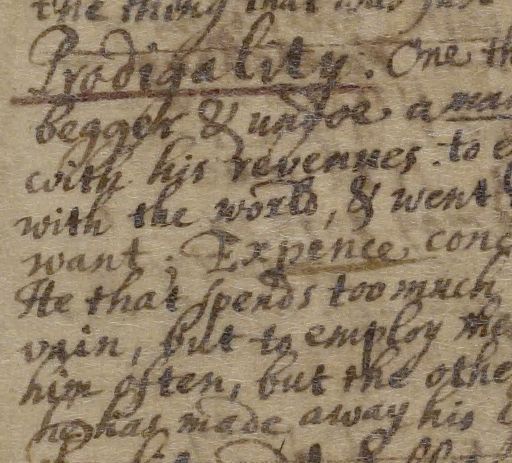 the thing that was just
Prodigality. One th
begger & undoe a man
with his revennes. to e
with the world, & went
want; Expence conc
He that spends too much
vain, but to employ the
him often, but the othe
he has made away his